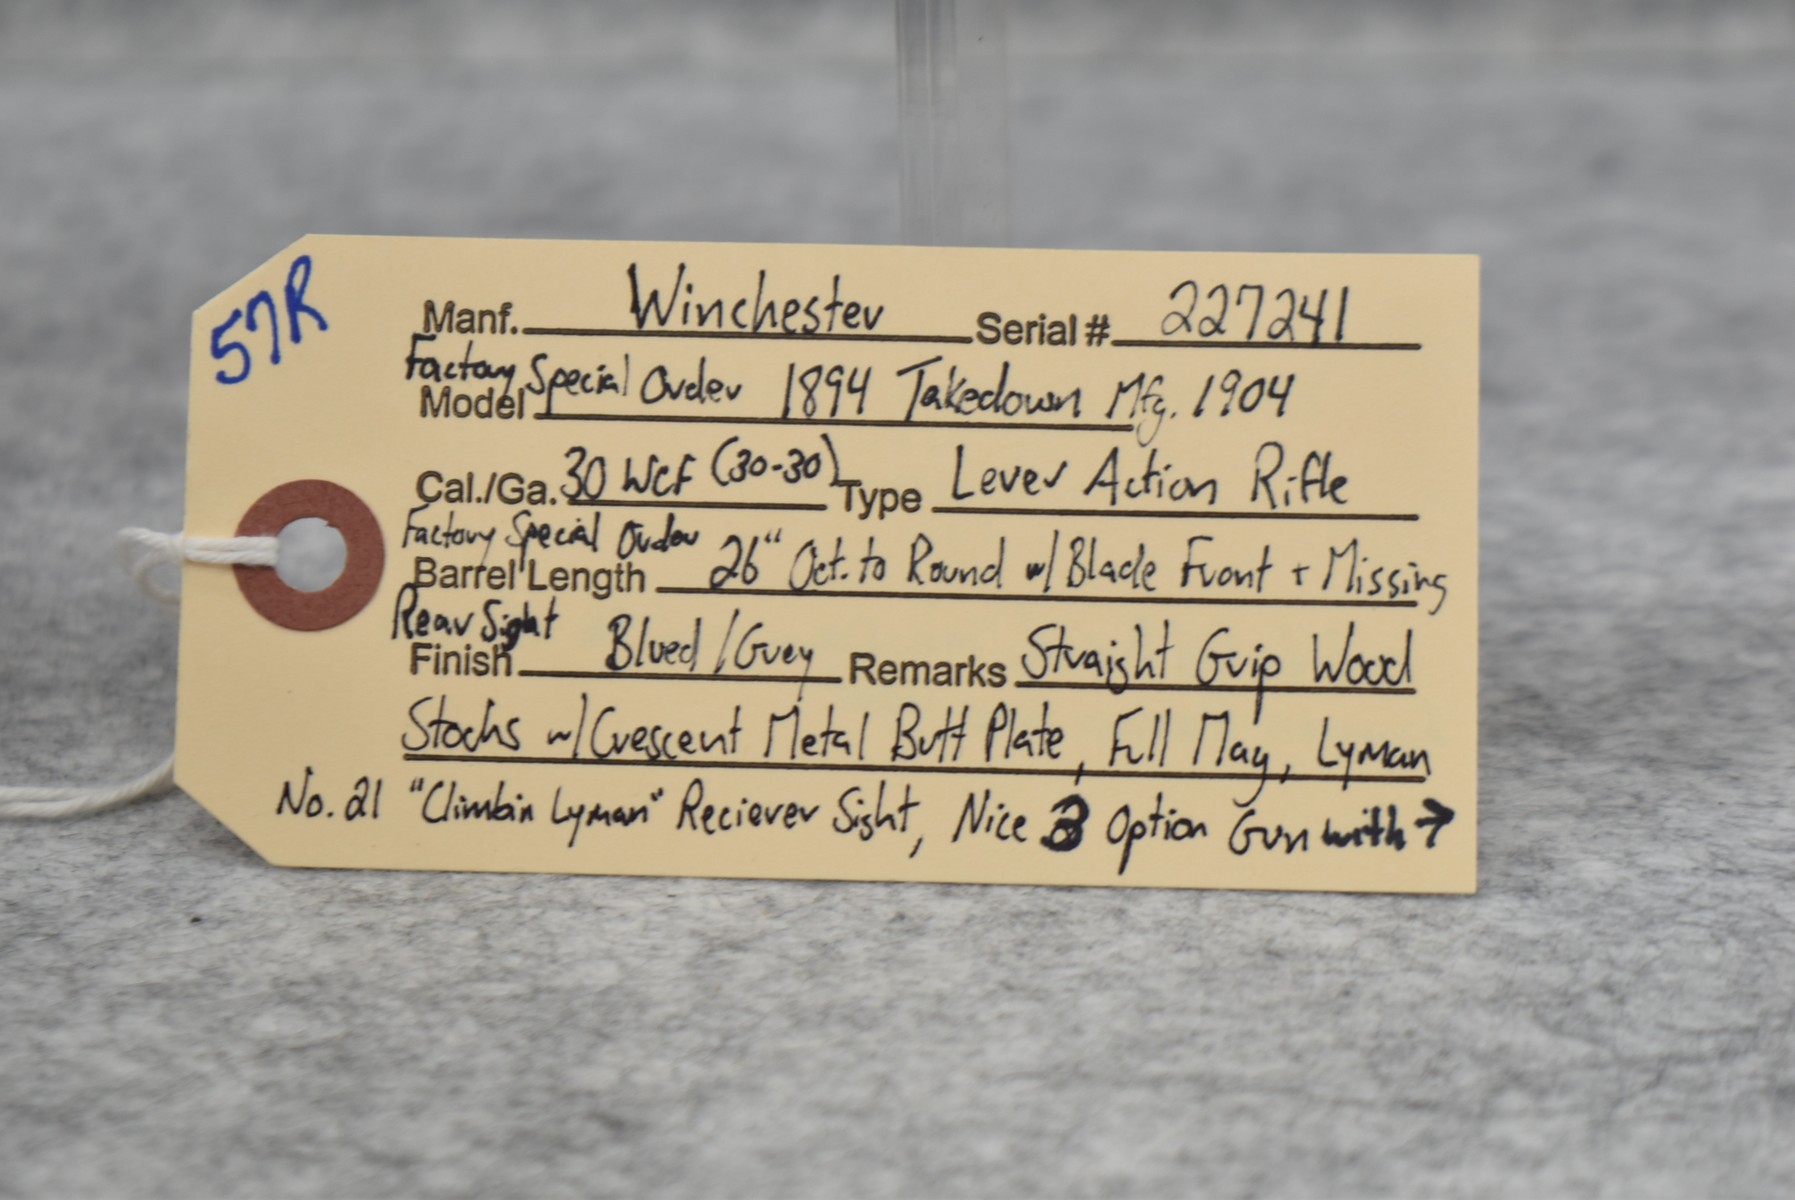 57R
Manf. Winchester Serial # 227241
Factory Special Order 1894 Takedown Mfg. 1904
Model
Cal./Ga. 30 WCF (30-30) Type Lever Action Rifle
Factory Special Order
Barrel Length 26" Oct. to Round w/ Blade Front + Missing
Rear Sight
Finish Blued / Grey Remarks Straight Grip Wood
Stocks w/ Crescent Metal Butt Plate, Full Mag, Lyman
No. 21 "Climbin Lyman" Reciever Sight, Nice 3 Option Gun with →